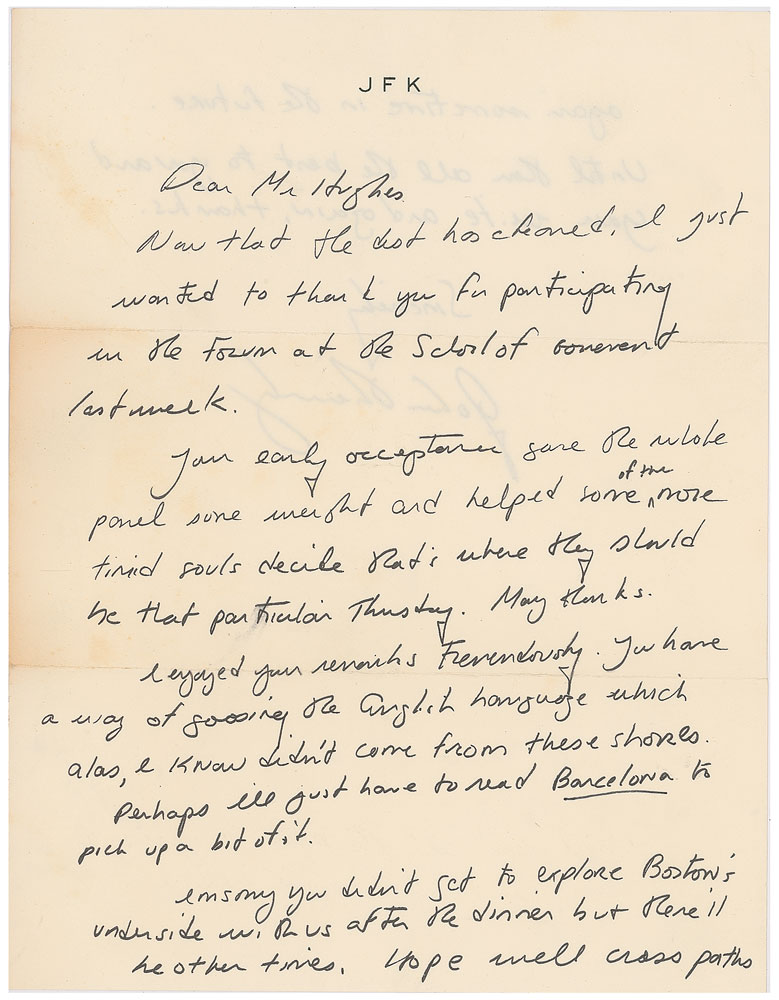 JFK
Dear Mr Hughes
Now that the dust has cleared, I just
wanted to thank you for participating
in the Forum at the School of Goverment
last week.
Your early acceptance gave the whole
panel some weight and helped some of the more
timid souls decide that's where they should
be that particular Thursday. Many thanks.
I enjoyed your remarks tremendously. You have
a way of the English language which
alas, I know didn't come from these shores.
Perhaps I'll just have to read Barcelona to
pick up a bit of it.
I'm sorry you didn't get to explore Boston's
underside with us after the dinner but there'll
be other times. Hope we'll cross paths
again sometime in the future.
Until then all the best to you and
your wife and again, thanks.
Sincerely
John Kennedy